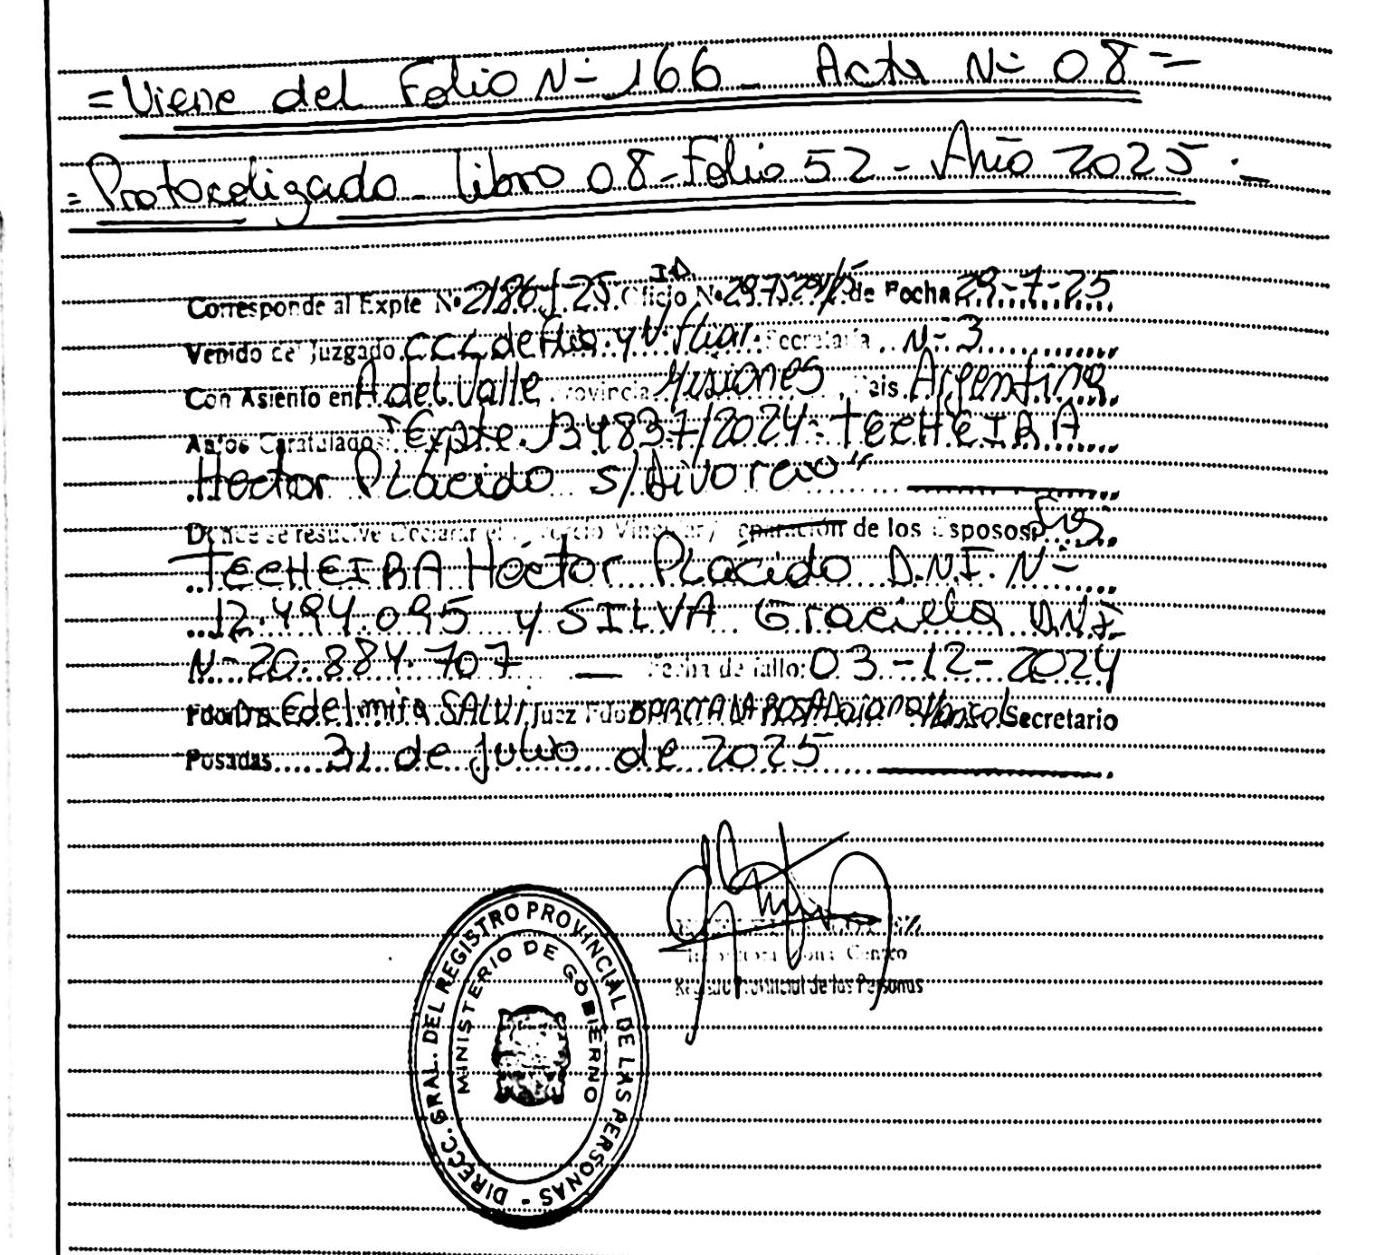 = Viene del Folio N- 166 - Acta N- 08 =
= Protocolizado - Libro 08 - Folio 52 - Año 2025 . -
Corresponde al Expte N° 2186/25 Oficio N° de Fecha 29-7-25
ID
Venido del Juzgado CCL de Flia. y V. Fliar. Secretaría N- 3
Con Asiento en A del Valle Provincia Misiones País Argentina
Autos Caratulados: "Expte. 134837/2024 - TECHEIRA
Hector PLácido s/divorcio"
Donde se resuelve Declarar el Divorcio Vincular / Separación de los Esposos
TECHEIRA Héctor PLácido D.N.I. N-
12.494.095 y SILVA Graciela DNI
N- 20.884.707 Fecha de fallo: 03-12-2024
Fdo. Dra. Edelmira SALVI Juez Fdo Secretario
Posadas 31 de julio de 2025
Registro Provincial de las Personas
DIRECC. GRAL. DEL REGISTRO PROVINCIAL DE LAS PERSONAS -
MINISTERIO DE GOBIERNO